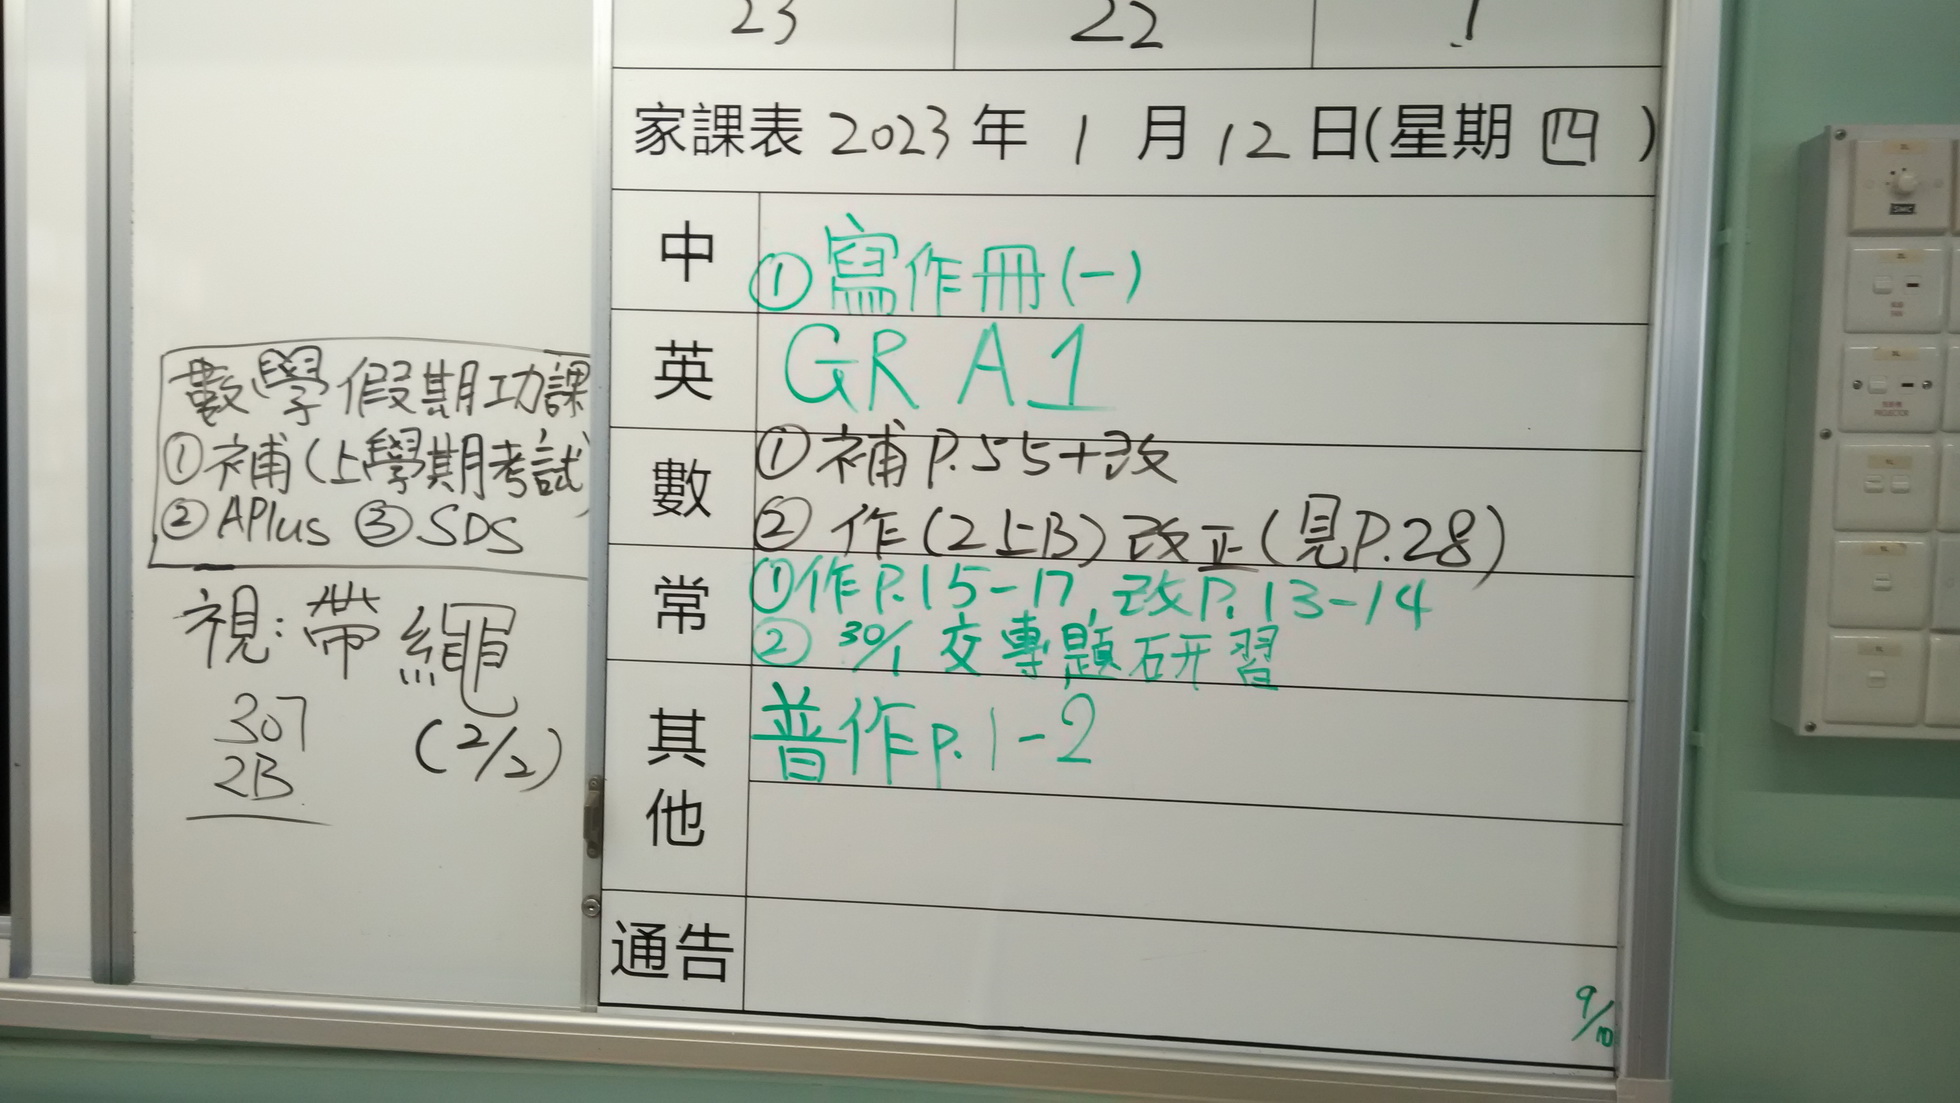 23 22 1
家課表 2023 年 1 月 12 日(星期 四 )
中 ①寫作冊(一)
英 GR A1
數 ①補P.55+改
② 作(2上B)改正(見P.28)
常 ①作P.15-17, 改P.13-14
② 30/1 交專題研習
其他 普作p.1-2
通告
9/10
數學假期功課
①補(上學期考試)
②APlus ③SDS
視:帶繩
307 (2/2)
2B
PROJECTOR